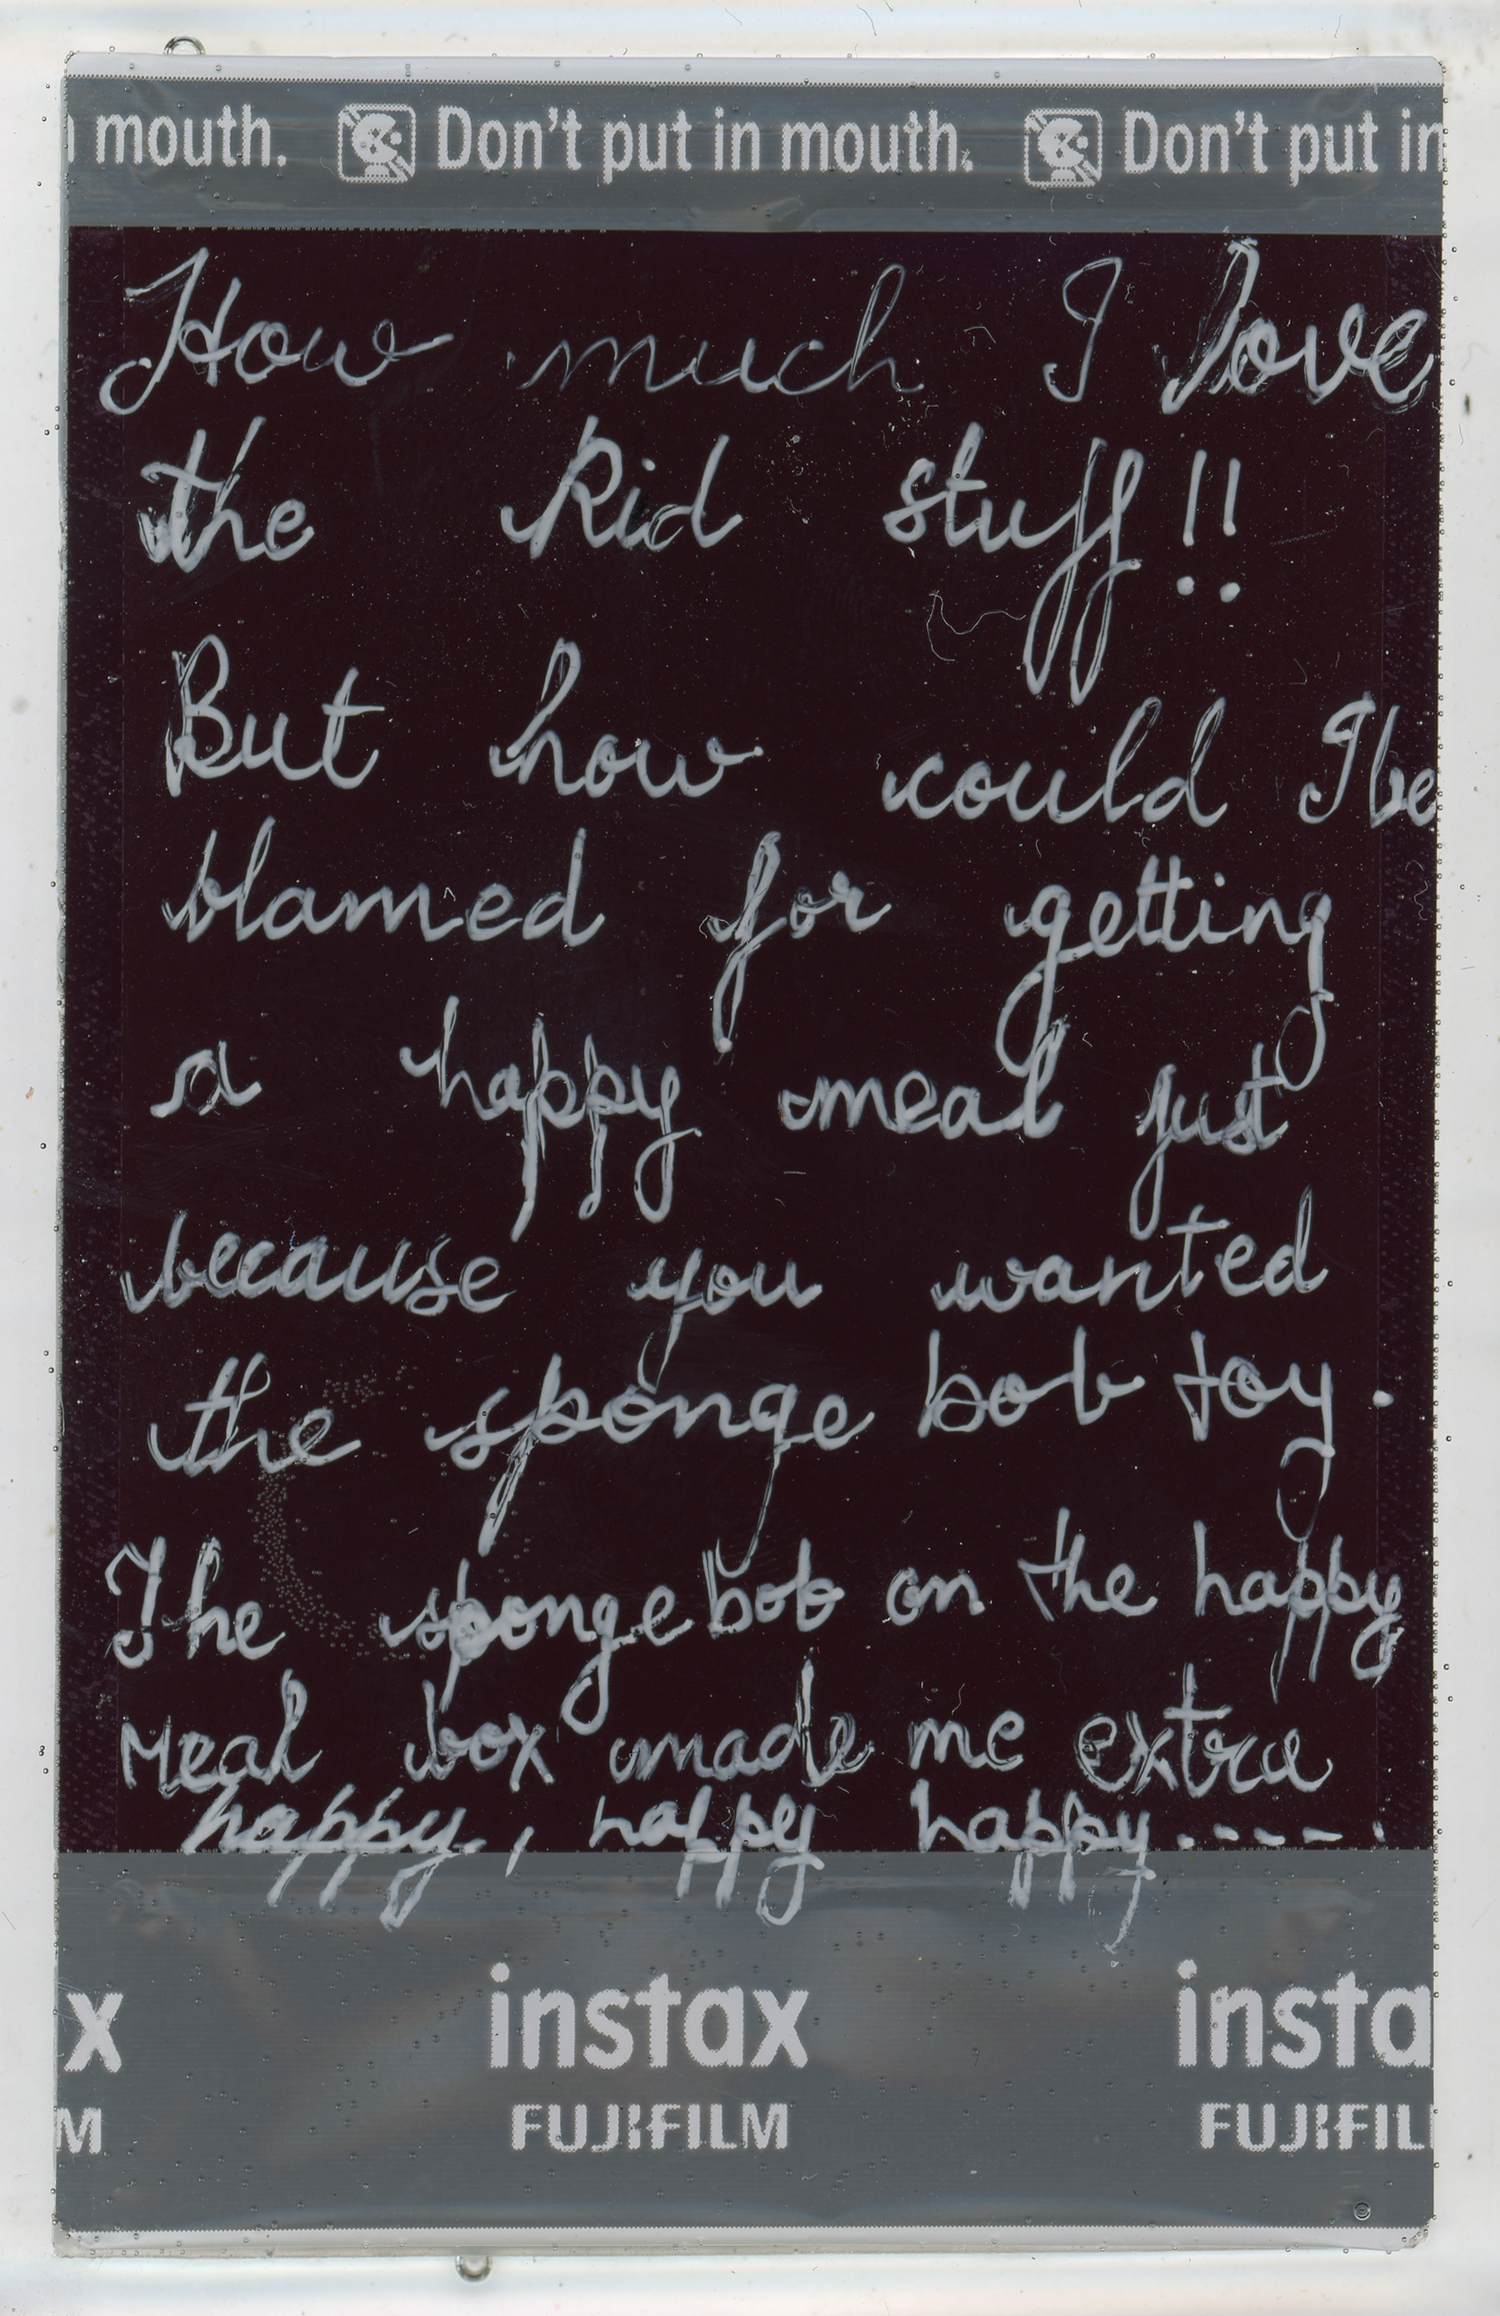 mouth. Don't put in mouth. Don't put in
How much I love
the kid stuff!!
But how could I be
blamed for getting
a happy meal just
because you wanted
the sponge bob toy.
The sponge bob on the happy
Meal box made me extra
happy, happy happy.----.
x instax insta
M FUJIFILM FUJIFIL